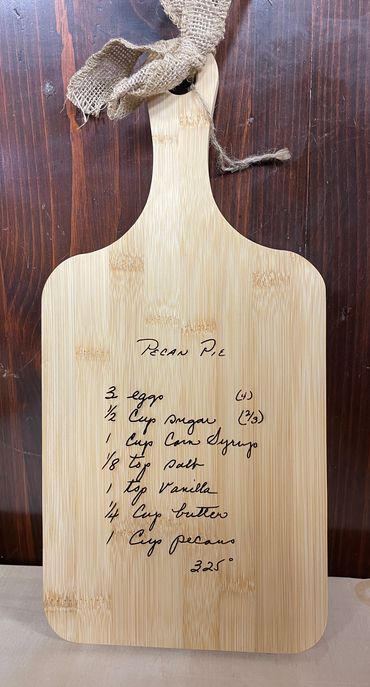 Pecan Pie
3 eggs (4)
1/2 Cup sugar (2/3)
1 Cup Corn Syrup
1/8 tsp salt
1 tsp Vanilla
1/4 Cup butter
1 Cup pecans
325°